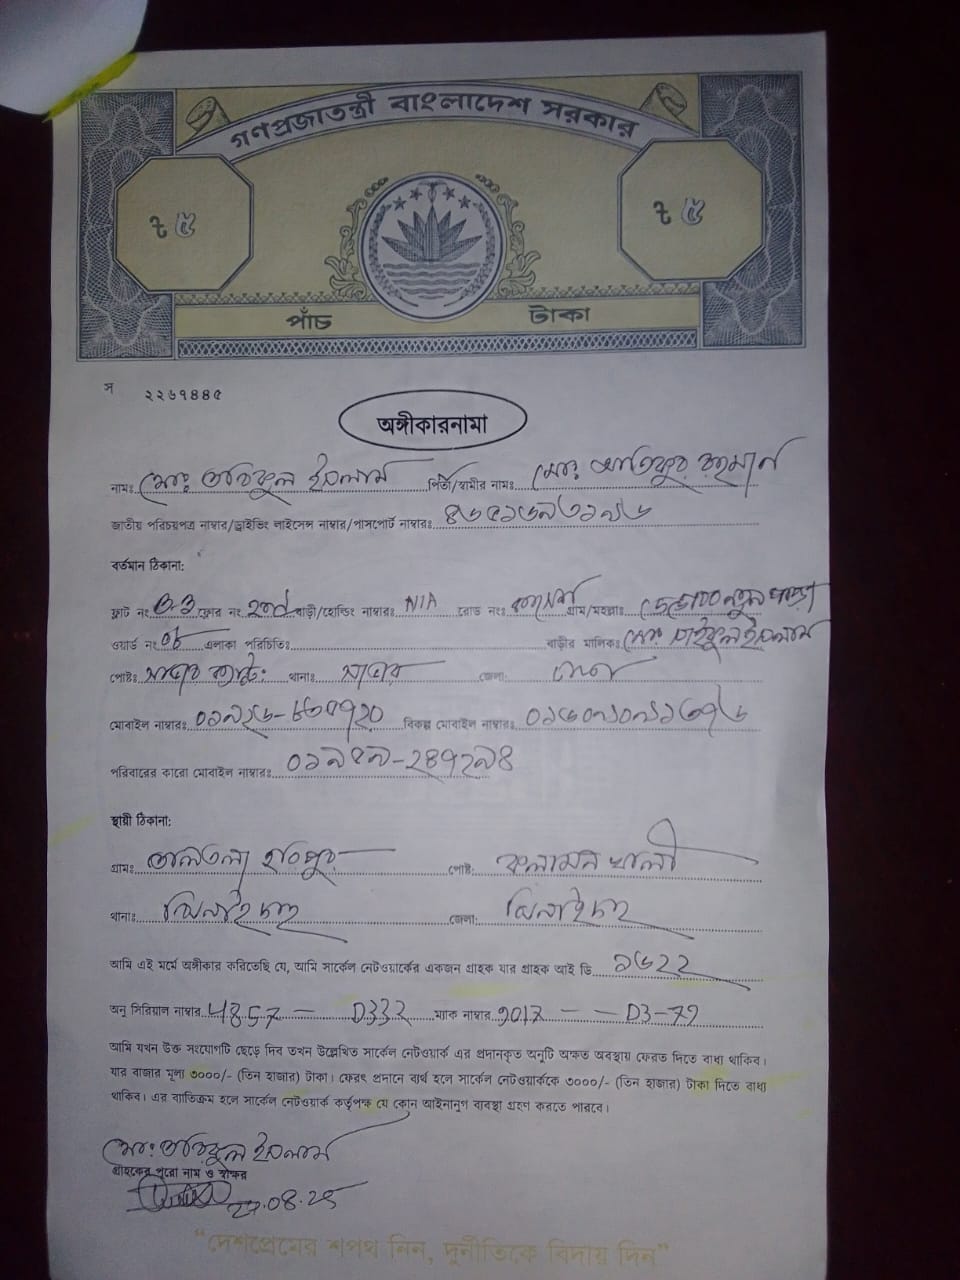 গণপ্রজাতন্ত্রী বাংলাদেশ সরকার
৳ ৫ ৳ ৫
পাঁচ টাকা
স ২২৬৭৪৪৫
অঙ্গীকারনামা
নামঃ মোঃ তরিকুল ইসলাম পিতা/স্বামীর নামঃ মোঃ আতিকুর রহমান
জাতীয় পরিচয়পত্র নাম্বার/ড্রাইভিং লাইসেন্স নাম্বার/পাসপোর্ট নাম্বারঃ
বর্তমান ঠিকানা:
ফ্লাট নং ফ্লোর নং বাড়ী/হোল্ডিং নাম্বারঃ N/A রোড নংঃ গ্রাম/মহল্লাঃ নতুন পাড়া
ওয়ার্ড নং এলাকা পরিচিতিঃ বাড়ীর মালিকঃ মোঃ ইসলাম
পোষ্টঃ থানাঃ জেলা:
মোবাইল নাম্বারঃ বিকল্প মোবাইল নাম্বারঃ
পরিবারের কারো মোবাইল নাম্বারঃ ০১৯৫৯-২৪৭২৯৪
স্থায়ী ঠিকানা:
গ্রামঃ তালতলা হরিপুর পোষ্ট:
থানাঃ ঝিনাইদহ জেলা: ঝিনাইদহ
আমি এই মর্মে অঙ্গীকার করিতেছি যে, আমি সার্কেল নেটওয়ার্কের একজন গ্রাহক যার গ্রাহক আই ডি ১৬২২
অনু সিরিয়াল নাম্বার 4857 — D332 ম্যাক নাম্বার 9017 — — D3-79
আমি যখন উক্ত সংযোগটি ছেড়ে দিব তখন উল্লেখিত সার্কেল নেটওয়ার্ক এর প্রদানকৃত অনুটি অক্ষত অবস্থায় ফেরত দিতে বাধ্য থাকিব।
যার বাজার মূল্য ৩০০০/- (তিন হাজার) টাকা। ফেরৎ প্রদানে ব্যর্থ হলে সার্কেল নেটওয়ার্ককে ৩০০০/- (তিন হাজার) টাকা দিতে বাধ্য
থাকিব। এর ব্যতিক্রম হলে সার্কেল নেটওয়ার্ক কর্তৃপক্ষ যে কোন আইনানুগ ব্যবস্থা গ্রহণ করতে পারবে।
মোঃ তরিকুল ইসলাম
গ্রাহকের পুরো নাম ও স্বাক্ষর
27.08.25
“দেশপ্রেমের শপথ নিন, দুর্নীতিকে বিদায় দিন”